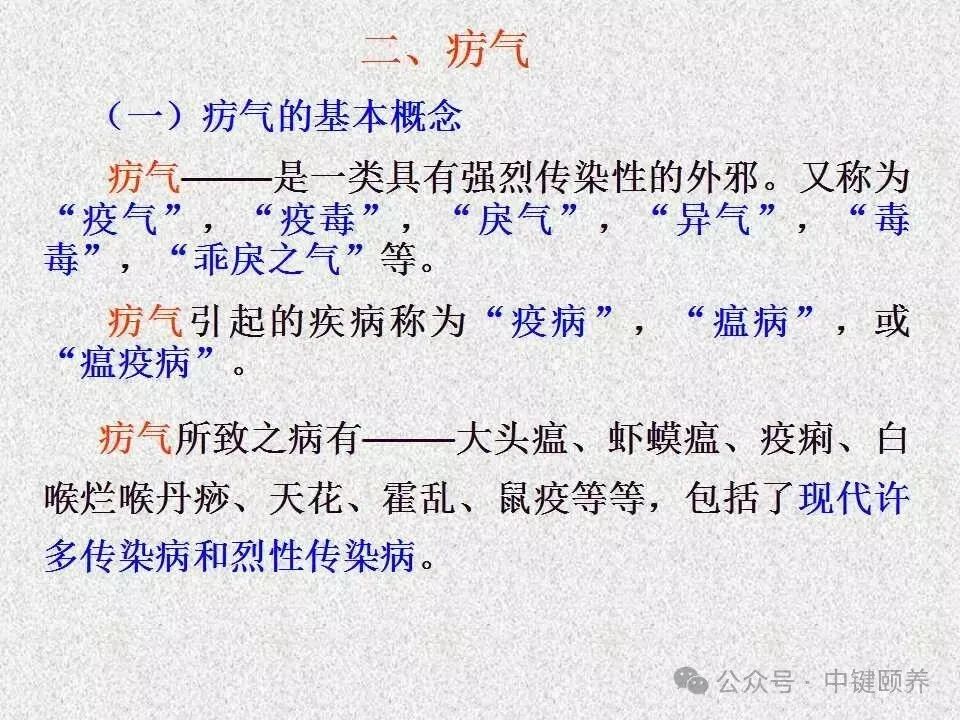 二、疠气
（一）疠气的基本概念
疠气———是一类具有强烈传染性的外邪。又称为
“疫气”，“疫毒”，“戾气”，“异气”，“毒
毒”，“乖戾之气”等。
疠气引起的疾病称为“疫病”，“瘟病”，或
“瘟疫病”。
疠气所致之病有———大头瘟、虾蟆瘟、疫痢、白
喉烂喉丹痧、天花、霍乱、鼠疫等等，包括了现代许
多传染病和烈性传染病。
公众号·中键颐养